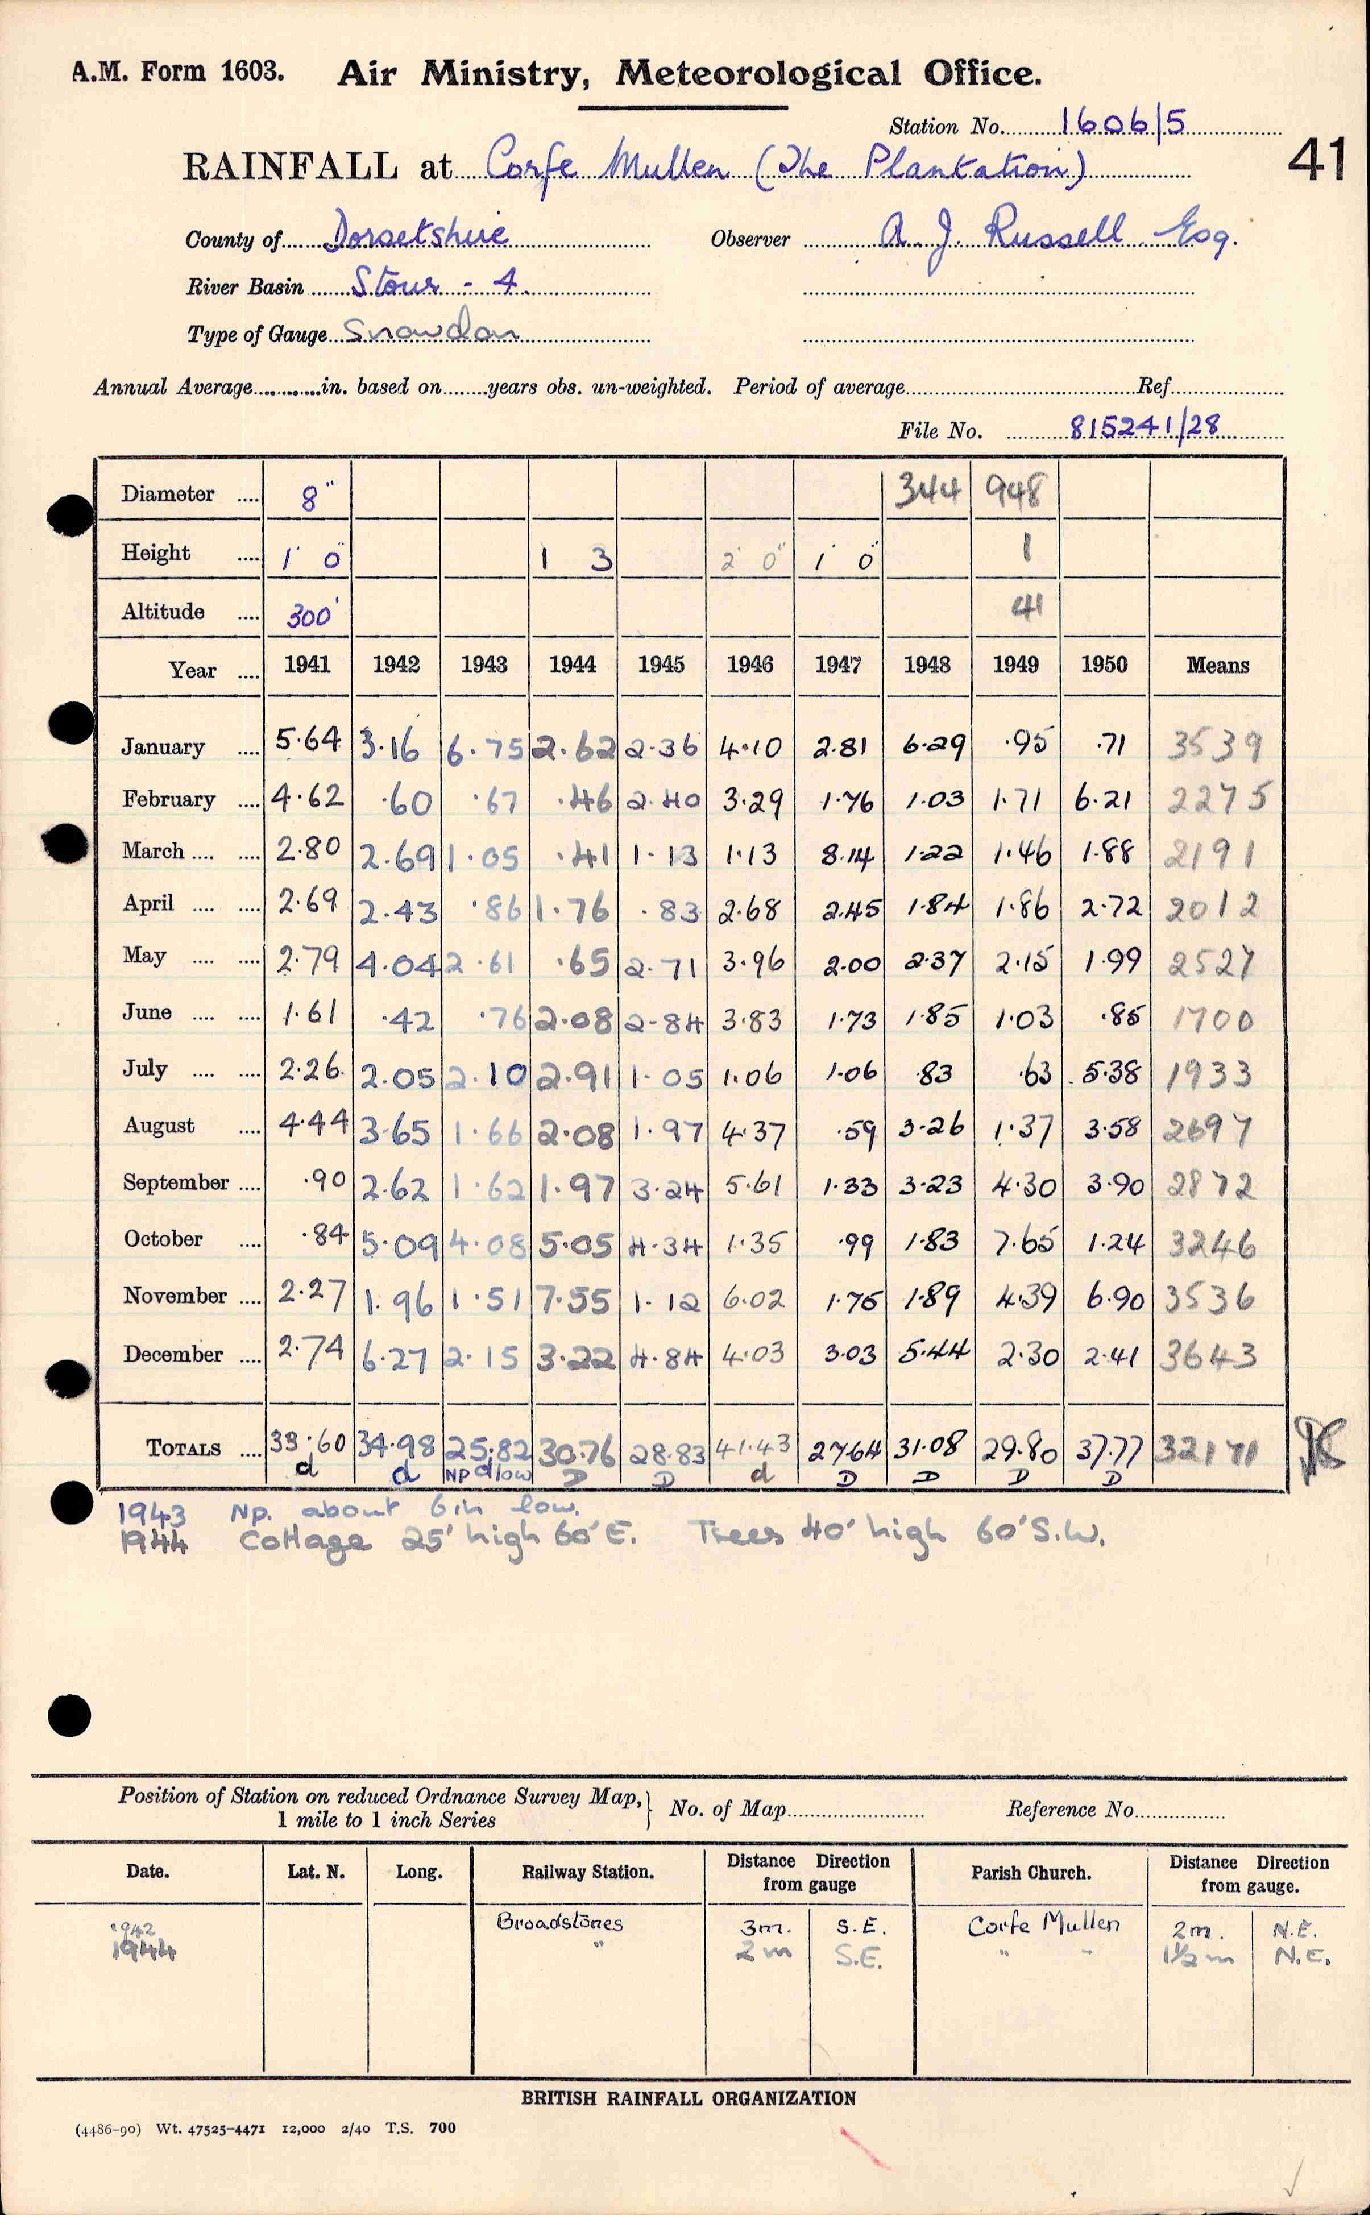 A.M. Form 1603. Air Ministry, Meteorological Office.
Station No. 1606/5
41
RAINFALL at Corfe Mullen (The Plantation)
County of Dorsetshire Observer A. J. Russell Esq.
River Basin Stour - 4
Type of Gauge Snowdon
Annual Average in. based on years obs. un-weighted. Period of average Ref.
File No. 815241/28
Diameter 8" 344 948
Height 1' 0" 1 3 2' 0" 1' 0" 1
Altitude 300' 41
Year 1941 1942 1943 1944 1945 1946 1947 1948 1949 1950 Means
January 5.64 3.16 6.75 2.62 2.36 4.10 2.81 6.29 .95 .71 3539
February 4.62 .60 .67 .46 2.40 3.29 1.76 1.03 1.71 6.21 2275
March 2.80 2.69 1.05 .41 1.13 1.13 8.14 1.22 1.46 1.88 2191
April 2.69 2.43 .86 1.76 .83 2.68 2.45 1.84 1.86 2.72 2012
May 2.79 4.04 2.61 .65 2.71 3.96 2.00 2.37 2.15 1.99 2527
June 1.61 .42 .76 2.08 2-84 3.83 1.73 1.85 1.03 .85 1700
July 2.26 2.05 2.10 2.91 1.05 1.06 1.06 .83 .63 5.38 1933
August 4.44 3.65 1.66 2.08 1.97 4.37 .59 3.26 1.37 3.58 2697
September .90 2.62 1.62 1.97 3.24 5.61 1.33 3.23 4.30 3.90 2872
October .84 5.09 4.08 5.05 4.34 1.35 .99 1.83 7.65 1.24 3246
November 2.27 1.96 1.51 7.55 1.12 6.02 1.75 1.89 4.39 6.90 3536
December 2.74 6.27 2.15 3.22 4.84 4.03 3.03 5.44 2.30 2.41 3643
TOTALS 33.60 34.98 25.82 30.76 28.83 41.43 27.64 31.08 29.80 37.77 32171
d d NP d low D D d D D D D
1943 Np. about 6in low.
1944 Cottage 25' high 60' E. Trees 40' high 60' S.W.
Position of Station on reduced Ordnance Survey Map, 1 mile to 1 inch Series No. of Map Reference No.
Date. Lat. N. Long. Railway Station. Distance Direction from gauge Parish Church. Distance Direction from gauge.
1942 Broadstones 3m. S.E. Corfe Mullen 2m. N.E.
1944 " 2m S.E. " " 1½m N.E.
BRITISH RAINFALL ORGANIZATION
(4486-90) Wt. 47525-4471 12,000 2/40 T.S. 700